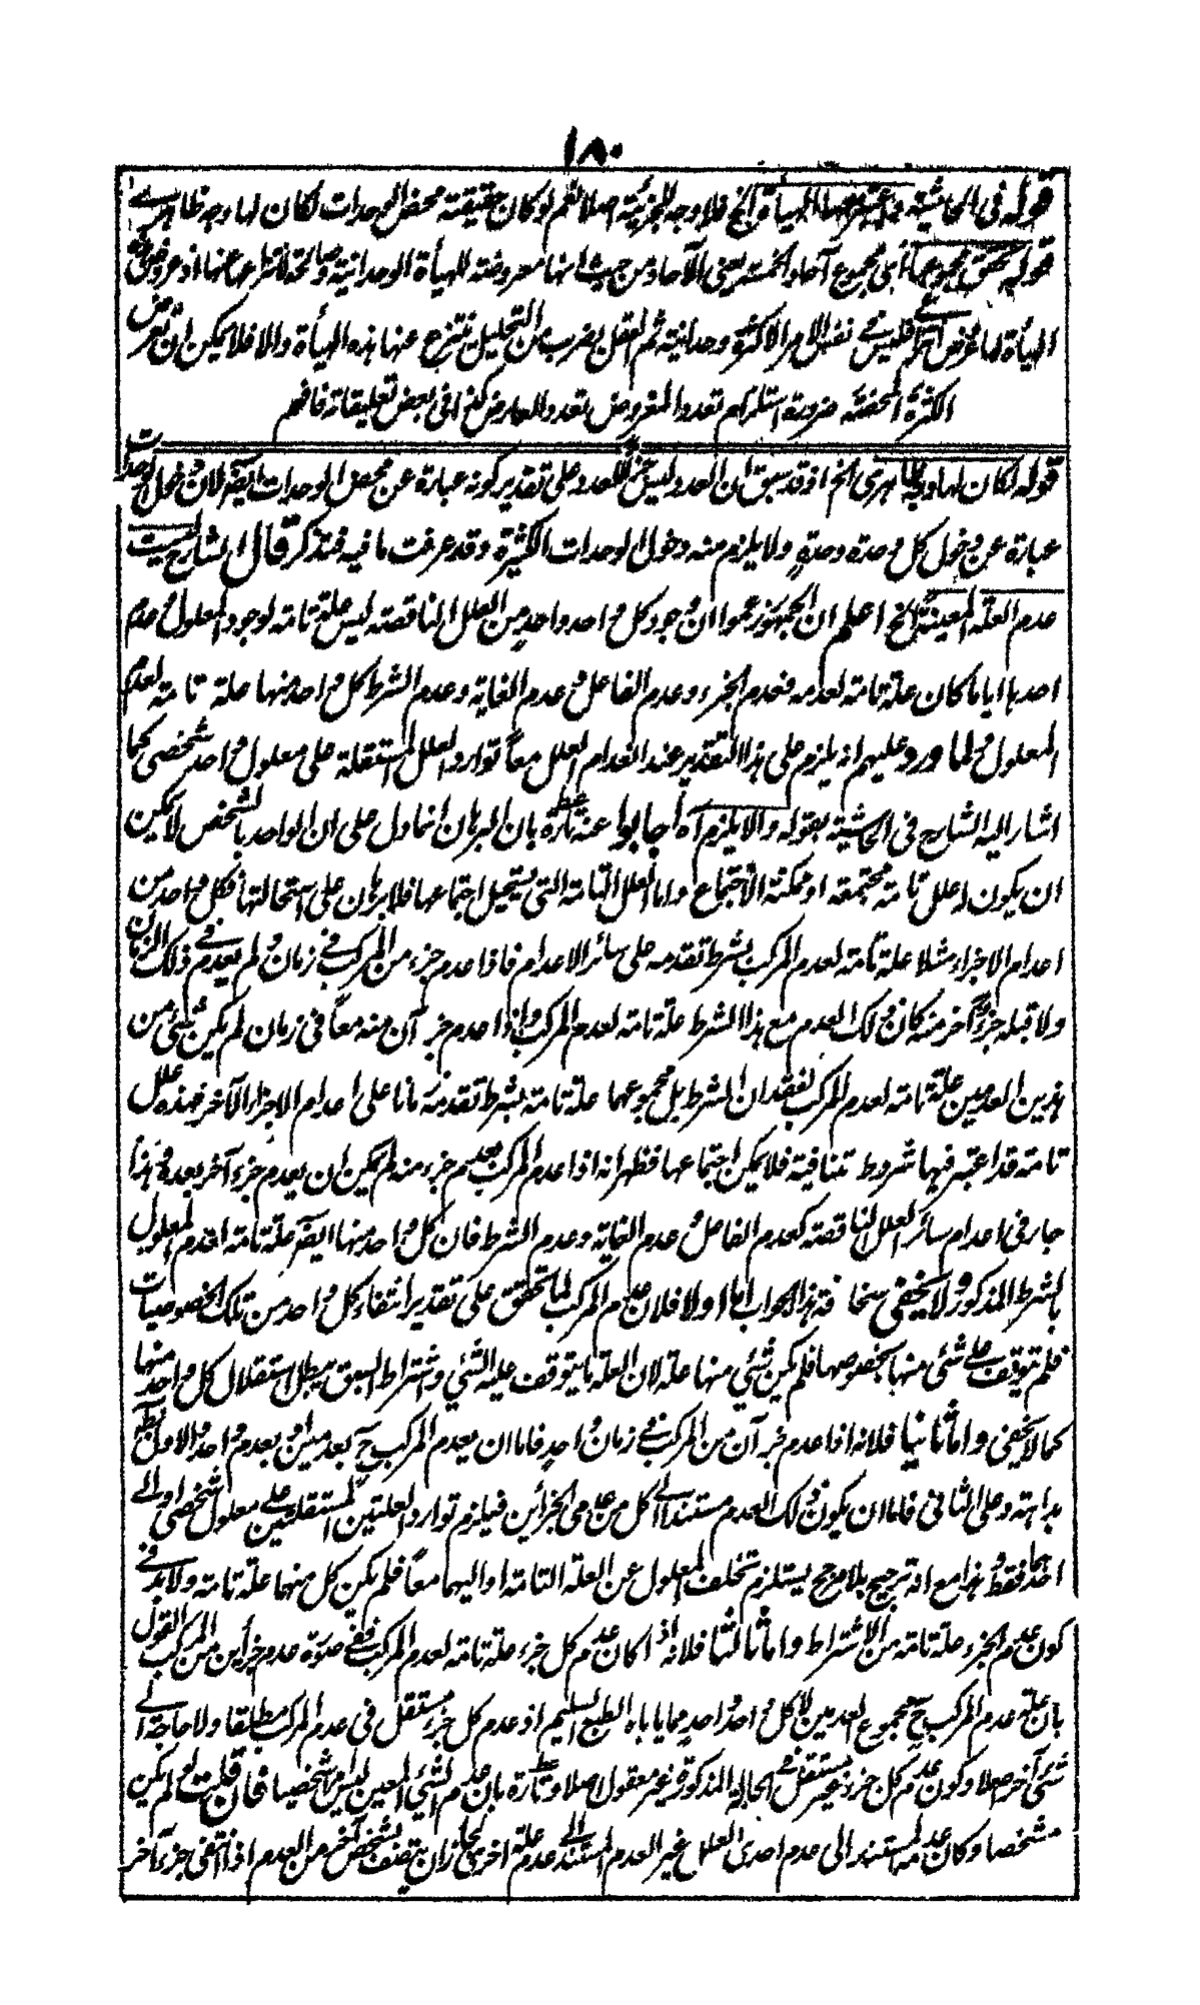 ١٨٠
قوله في الحاشية وما عتبر معها الهيأة الخ فلا وجه للجزئية اصلا نعم لو كان حقيقته محض الوحدات لكان لها وجه ظاهري
قوله تحقق مجموعها اي مجموع آحاد الخمسة يعني الآحاد من حيث انها معروضة للهيأة الوحدانية وصالحة لانتزاعها عنها اذ عروض
الهيأة لها فليس في نفس الامر الا كثرة وحدانية ثم العقل بضرب من التحليل ينتزع عنها هذه الهيأة والا فلا يمكن ان تعرض
الكثرة المحضة ضرورة استلزام تعدد المعروض تعدد العارض كذا في بعض تعليقاته فافهم
قوله لكان لها وجه ظاهري الخ اذ قد سبق ان العدد ليس جزءً للعدد على تقدير كونه عبارة عن محض الوحدات ايضا لان دخول الوحدات
عبارة عن دخول كل وحدة وحدة ولا يلزم منه دخول الوحدات الكثيرة وقد عرفت ما فيه فتذكر قال الشارح ليست
عدم العلة المعينة الخ اعلم ان الجمهور زعموا ان وجود كل واحد واحد من العلل الناقصة ليس علة تامة لوجود المعلول وعدم
احدها اياما كان علة تامة لعدمه فعدم الجزء وعدم الفاعل وعدم الغاية وعدم الشرط كل واحد منها علة تامة لعدم
المعلول ولما ورد عليهم انه يلزم على هذا التقدير عند انعدام العلل معاً توارد العلل المستقلة على معلول واحد شخصي كما
اشار اليه الشارح في الحاشية بقوله والا يلزم آه اجابوا عنه تارة بان البرهان انما دل على ان الواحد بالشخص لا يمكن
ان يكون له علل تامة مجتمعة او ممكنة الاجتماع واما العلل التامة التي يستحيل اجتماعها فلا برهان على استحالتها فكل واحد من
اعدام الاجزاء مثلا علة تامة لعدم المركب بشرط تقدمه على سائر الاعدام فاذا عدم جزء من المركب في زمان ولم يعدم في ذلك الزمان
ولا قبله جزء آخر منه كان ذلك العدم مع هذا الشرط علة تامة لعدم المركب واذا عدم جزآن منه معاً في زمان لم يكن شئ من
هذين العدمين علة تامة لعدم المركب لفقدان الشرط بل مجموعهما علة تامة بشرط تقدمه زمانا على اعدام الاجزاء الآخر فهذه علل
تامة قد اعتبر فيها شروط متنافية فلا يمكن اجتماعها فظهر انه اذا عدم المركب بعدم جزء منه لم يمكن ان يعدم جزء آخر بعده وهذا
جار في اعدام سائر العلل الناقصة كعدم الفاعل وعدم الغاية وعدم الشرط فان كل واحد منها ايضا علة تامة لعدم المعلول
بالشرط المذكور ولا يخفى سخافة هذا الجواب اما اولا فلان عدم المركب لما تحقق على تقدير انتفاء كل واحد من تلك الخصوصيات
فلم يتوقف على شئ منها بخصوصها فلم يكن شئ منها علة لان العلة ما يتوقف عليه الشئ واشتراط السبق يبطل استقلال كل واحد منها
كما لا يخفى واما ثانيا فلانه اذا عدم جزآن من المركب في زمان واحد فاما ان يعدم المركب ح بعدمين او بعدم واحد والاول باطل
بداهة وعلى الثاني فاما ان يكون ذلك العدم مستندا الى كل من عدمي الجزئين فيلزم توارد العلتين المستقلتين على معلول شخصي او الى
احدهما فقط وهذا مع انه ترجيح بلا مرجح يستلزم تخلف المعلول عن العلة التامة او اليهما معاً فلم يكن كل منهما علة تامة ولا بد في
كون عدم الجزء علة تامة من الاشتراط واما ثالثا فلانه اذا كان عدم كل جزء علة تامة لعدم المركب ففي صورة عدم جزأين من المركب القول
بان علة عدم المركب ح مجموع العدمين لا كل واحد واحد مما يأباه الطبع السليم اذ عدم كل جزء مستقل في عدم المركب مطلقا ولا حاجة الى
شئ آخر اصلا وكون عدم كل جزء غير مستقل في الحالة المذكورة غير معقول اصلا وتارة بان عدم الشئ المعين ليس امرا شخصيا فان قلت لو لم يكن
مشخصا وكان عدمه المستند الى عدم احدى العلل غير العدم المستند الى عدم علة اخرى لجاز ان يتصف بشخص آخر من العدم اذا انتفى جزء آخر